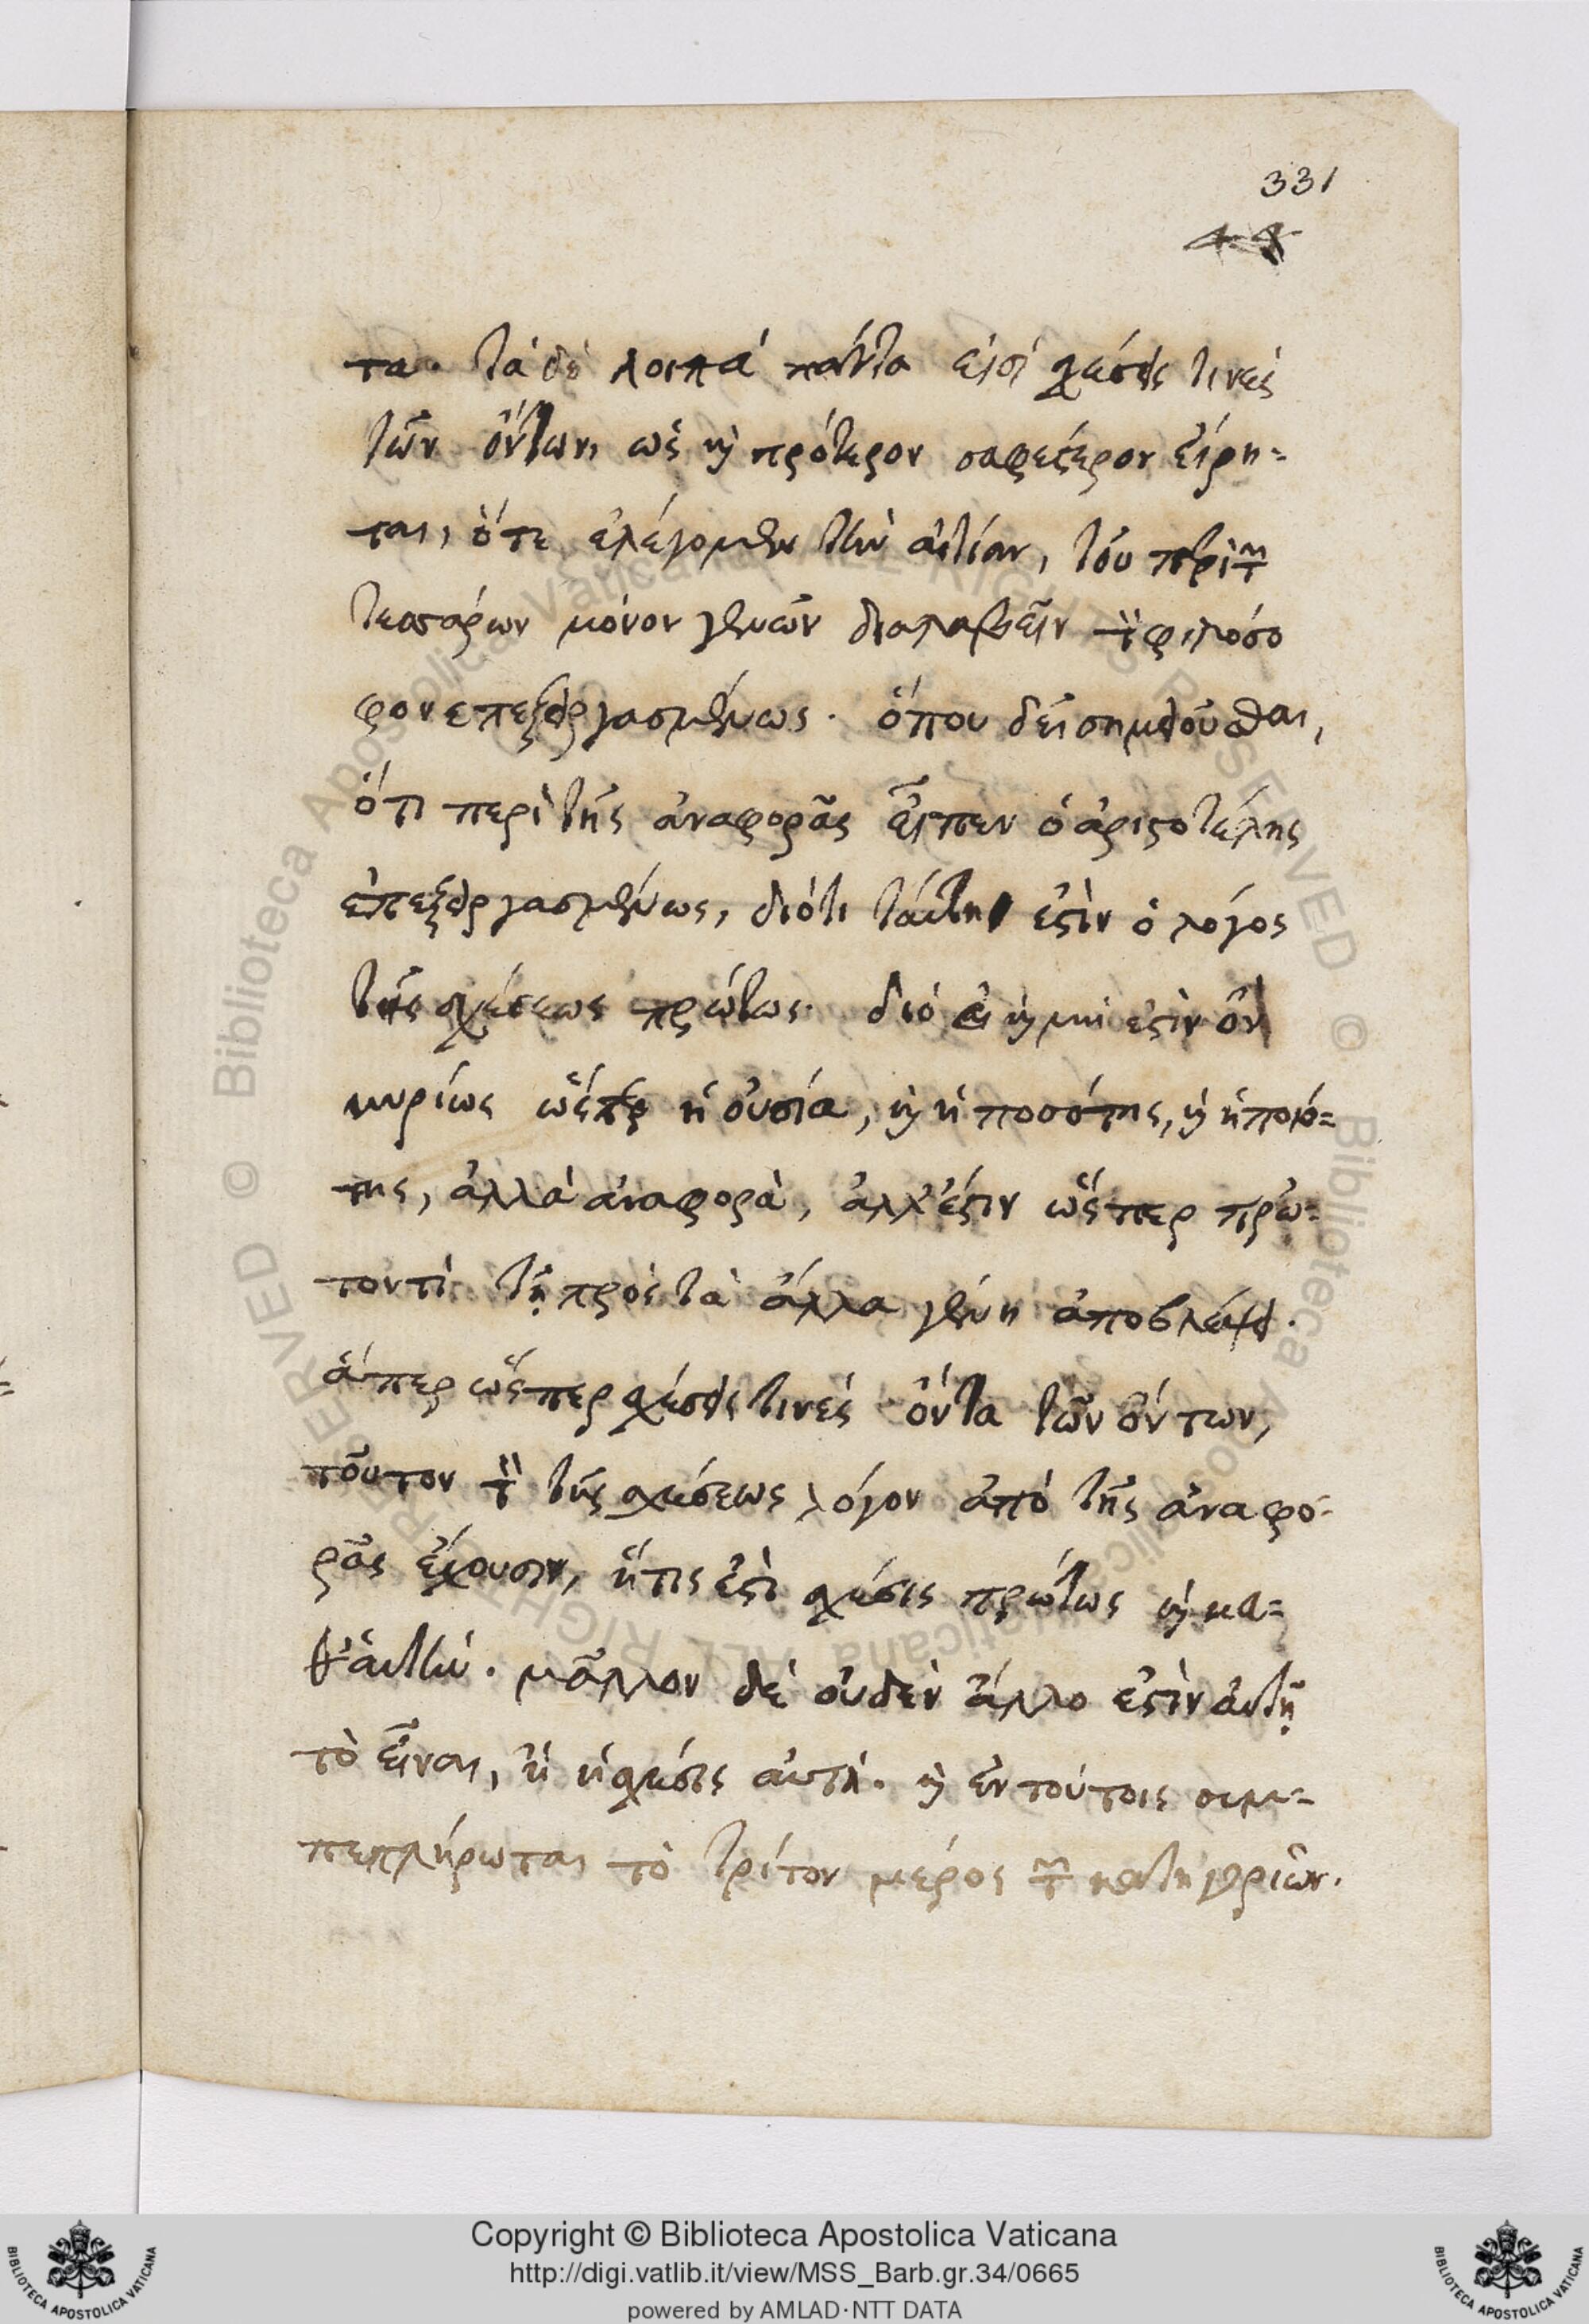 331
τα. τὰ δὲ λοιπὰ πάντα εἰσὶ σχέσεις τινὲς
τῶν ὄντων, ὡς καὶ πρότερον σαφέστερον εἴρη-
ται, ὅτε ἐλέγομεν τὴν αἰτίαν, τοῦ περὶ τῶν
τεσσάρων μόνον γενῶν διαλαβεῖν τὸν φιλόσο
φον ἐπεξειργασμένως. ὅπου δεῖ σημειοῦσθαι,
ὅτι περὶ τῆς ἀναφορᾶς εἶπεν ὁ ἀριστοτέλης
ἐπεξειργασμένως, διότι ταύτης ἐστὶν ὁ λόγος
τῆς σχέσεως πρώτως. διὸ εἰ καὶ μή ἐστιν ὂν
κυρίως ὥσπερ ἡ οὐσία, καὶ ἡ ποσότης, καὶ ἡ ποιό-
της, ἀλλὰ ἀναφορὰ, ἀλλ' ἔστιν ὥσπερ πρῶ-
τον τὶ τῇ πρὸς τὰ ἄλλα γένη ἀποβλέψει.
ἅπερ ὥσπερ σχέσεις τινὲς ὄντα τῶν ὄντων,
τοῦτον τὸν τῆς σχέσεως λόγον ἀπὸ τῆς ἀναφο-
ρᾶς ἔχουσιν, ἥτις ἐστὶ σχέσις πρώτως καὶ κα-
θ' ἁυτήν. μᾶλλον δὲ οὐδὲν ἄλλο ἐστὶν αὐτῇ
τὸ εἶναι, ἢ ἡ σχέσις αὐτή. καὶ ἐν τούτοις συμ-
πεπλήρωται τὸ τρίτον μέρος τῶν κατηγοριῶν.
Copyright © Biblioteca Apostolica Vaticana
http://digi.vatlib.it/view/MSS_Barb.gr.34/0665
powered by AMLAD·NTT DATA